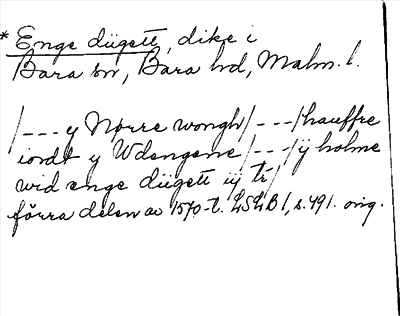 * Enge dügett, dike i
Bara sn, Bara hd, Malm. l.
/---y Nørre wongh/---/hauffre
iordt y Wdengene/---/ÿ holme
wid enge dügett iij tr/
förra delen av 1570-t. LSLB 1, s. 491. orig.